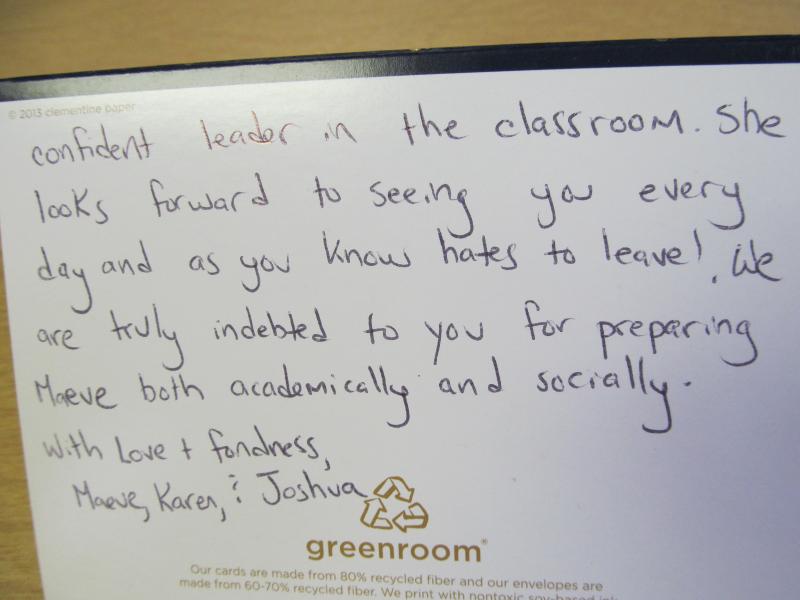 © 2013 clementine paper
confident leader in the classroom. She
looks forward to seeing you every
day and as you know hates to leave! We
are truly indebted to you for preparing
Maeve both academically and socially.
With Love + fondness,
Maeve, Karen, & Joshua
greenroom®
Our cards are made from 80% recycled fiber and our envelopes are
made from 60-70% recycled fiber. We print with nontoxic soy-based